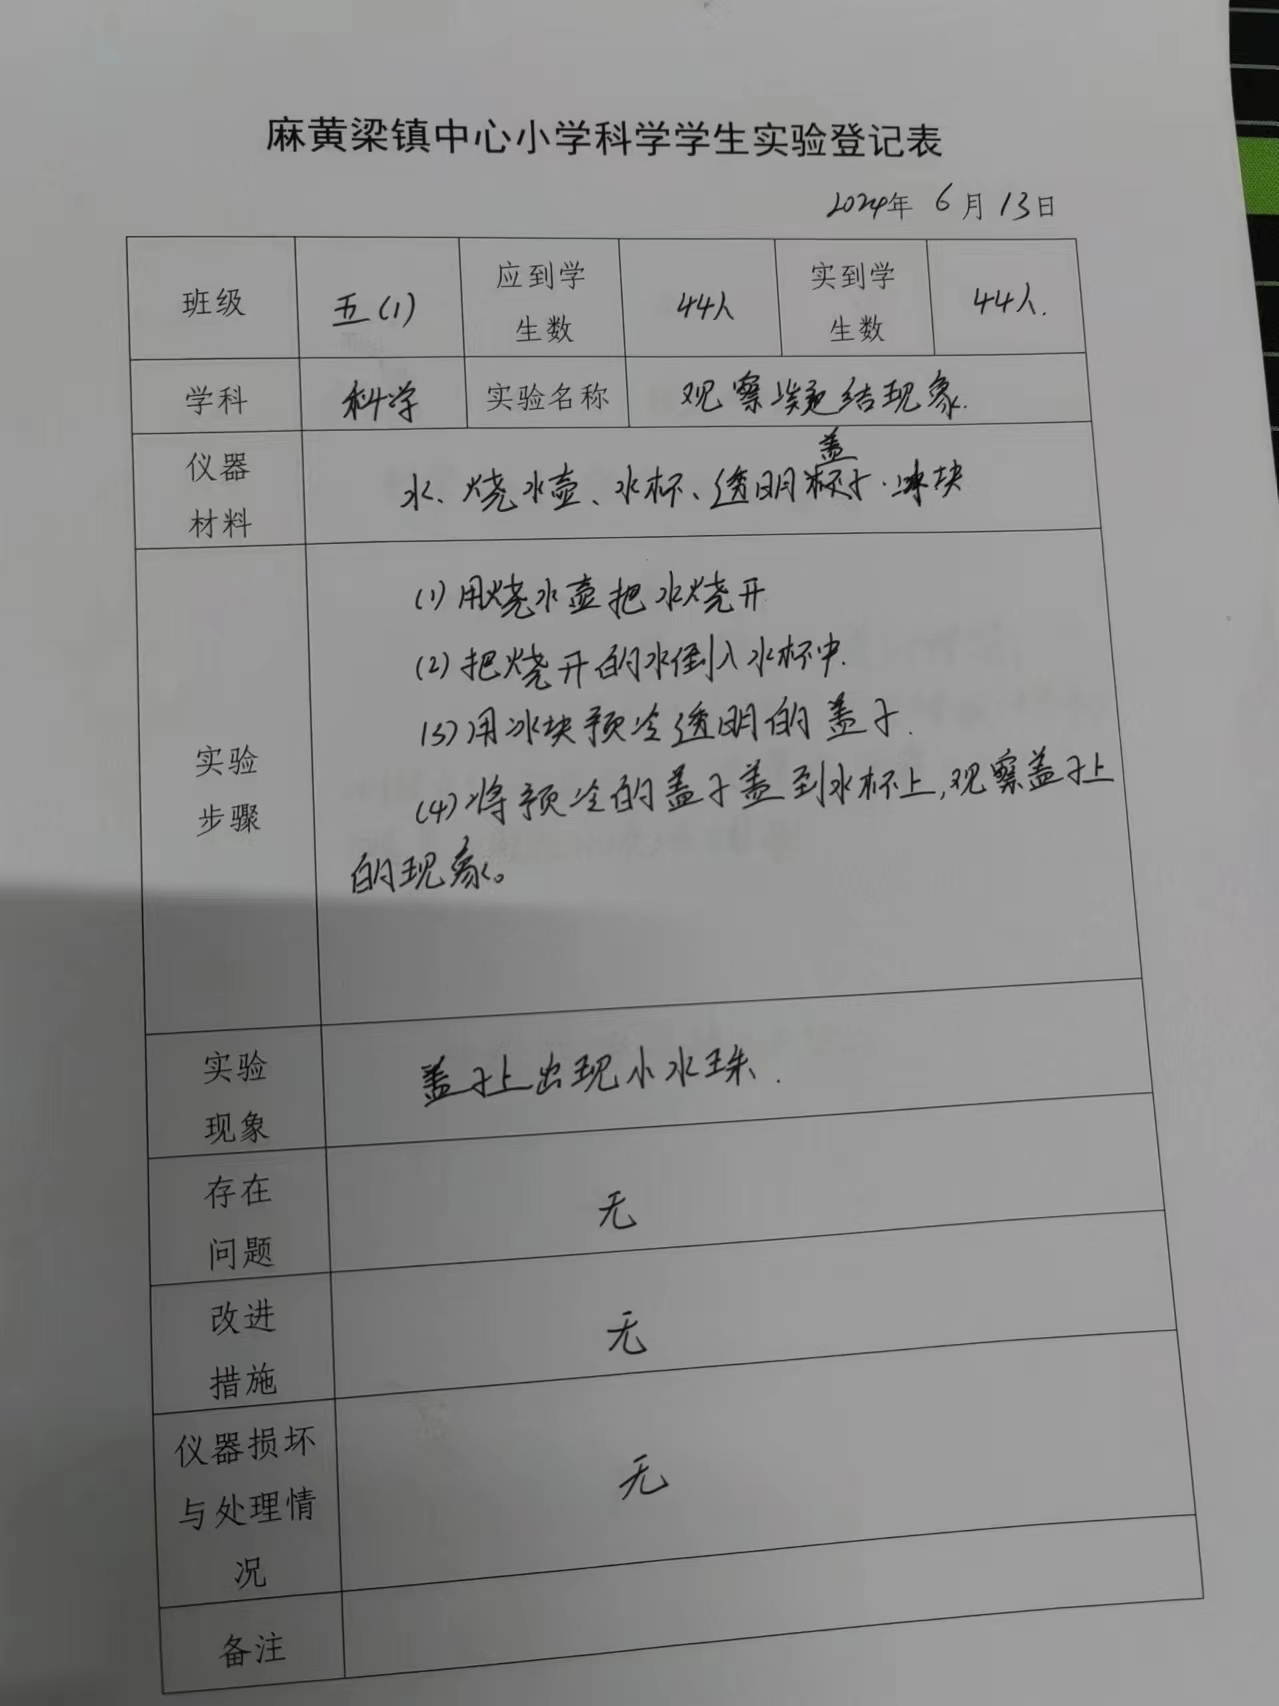 麻黄梁镇中心小学科学学生实验登记表
2024年 6月 13日
班级 五(1) 应到学生数 44人 实到学生数 44人.
学科 科学 实验名称 观察凝结现象.
仪器材料 水、烧水壶、水杯、透明盖子.冰块
(1)用烧水壶把水烧开
(2)把烧开的水倒入水杯中.
(3)用冰块预冷透明的盖子.
实验步骤
(4)将预冷的盖子盖到水杯上,观察盖子上
的现象。
实验现象 盖子上出现小水珠.
存在问题 无
改进措施 无
仪器损坏与处理情况 无
备注